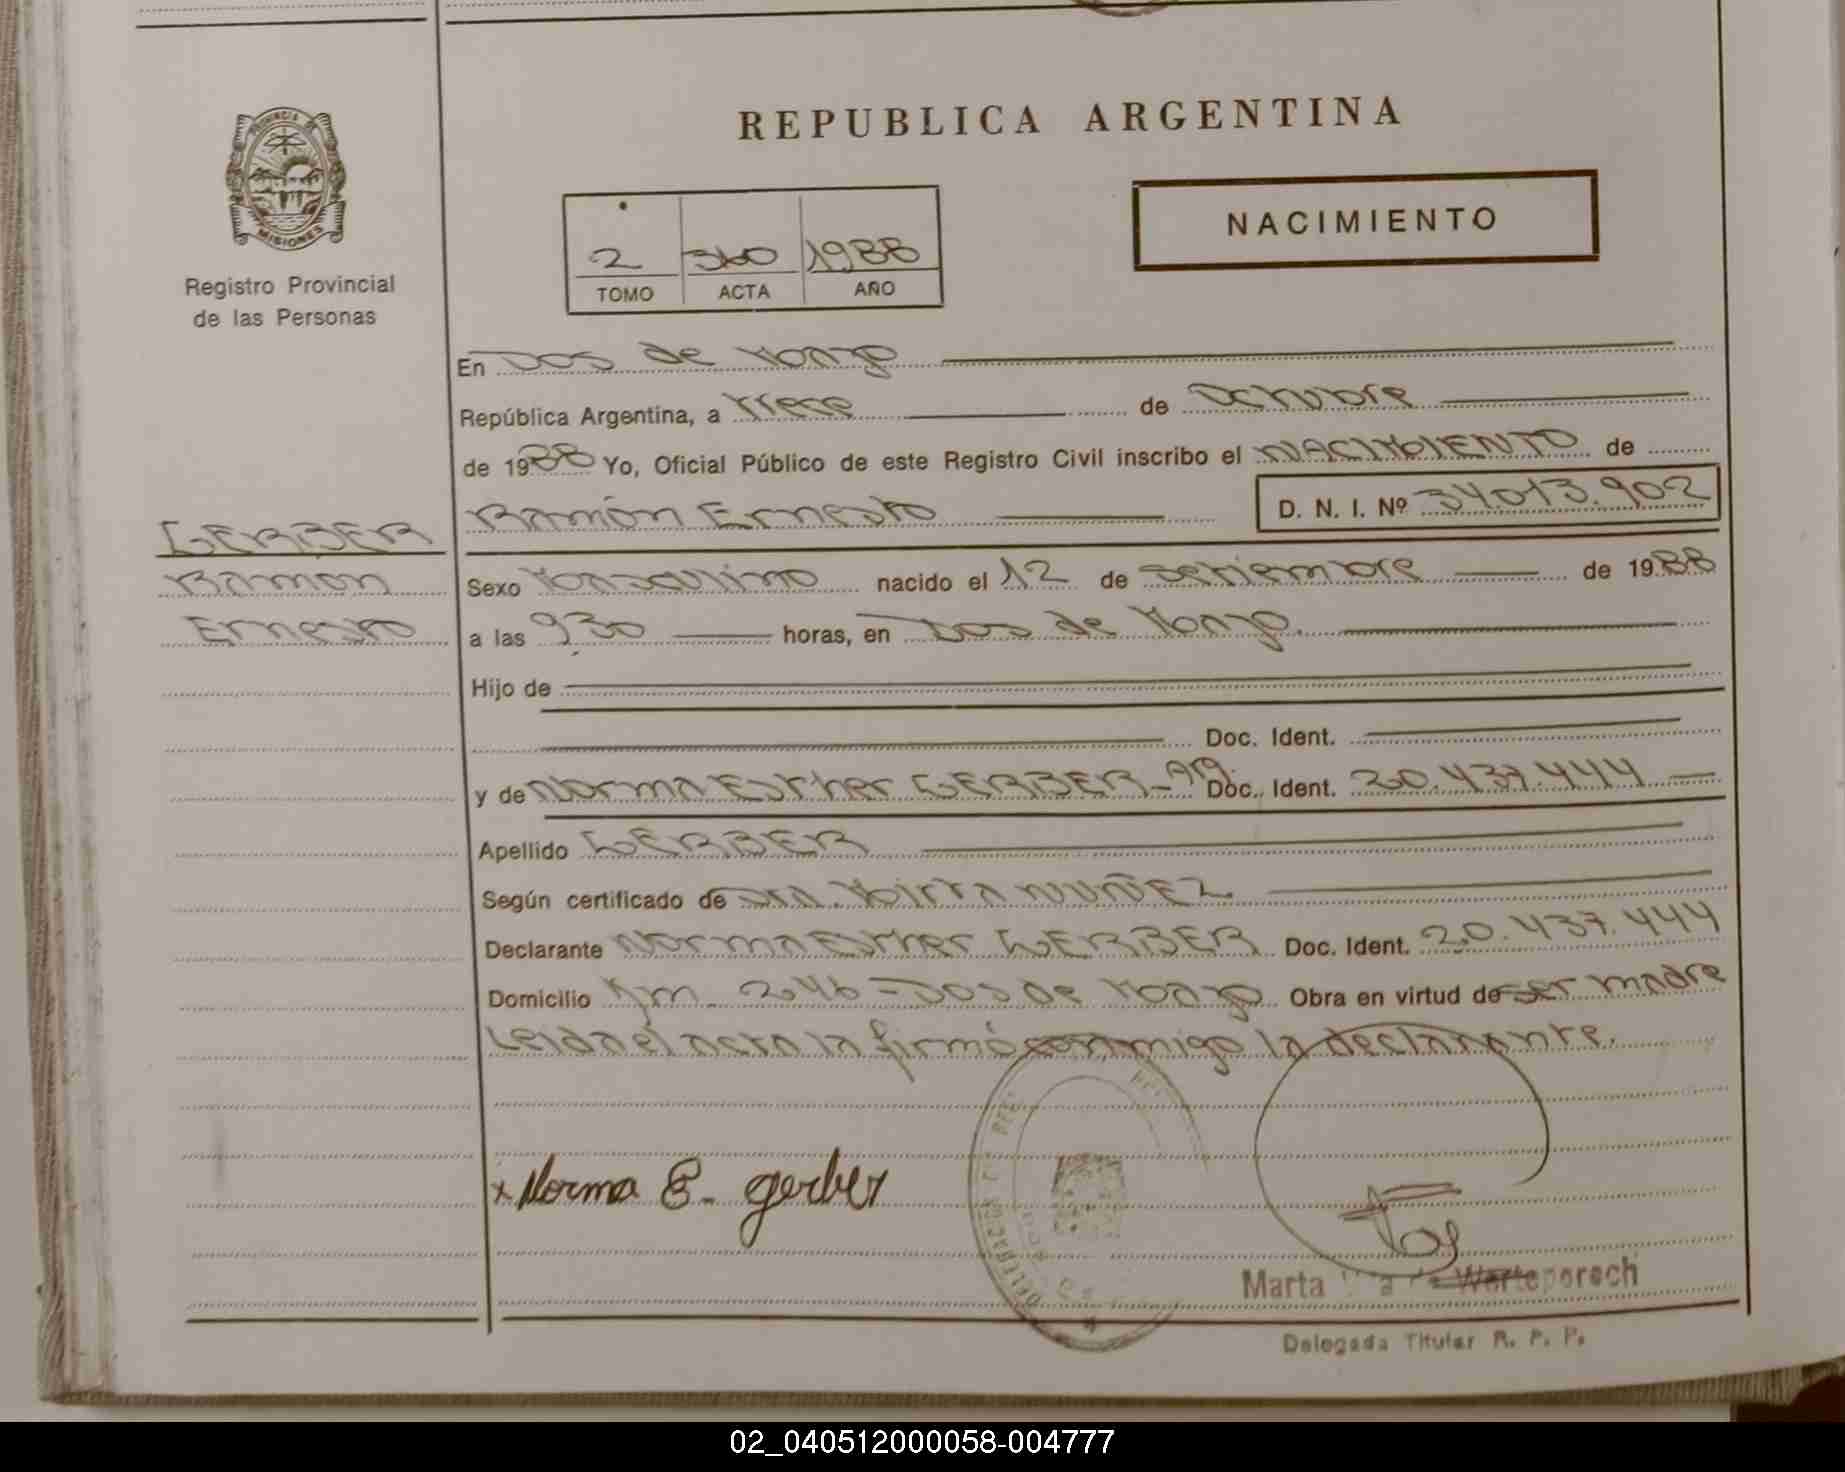 REPUBLICA ARGENTINA
PROVINCIA DE
MISIONES
Registro Provincial
de las Personas
NACIMIENTO
2 340 1988
TOMO ACTA AÑO
En Dos de Mayo
República Argentina, a trece de Octubre
de 1988 Yo, Oficial Público de este Registro Civil inscribo el NACIMIENTO de
Ramón Ernesto D. N. I. Nº 34.013.902
GERBER
Ramón
Ernesto
Sexo Masculino nacido el 12 de setiembre de 1988
a las 9,30 horas, en Dos de Mayo.
Hijo de
Doc. Ident.
y de Norma Esther GERBER - Doc. Ident. 20.437.444
Apellido GERBER
Según certificado de Dra. Mirta NUÑEZ
Declarante Norma Esther GERBER Doc. Ident. 20.437.444
Domicilio Km. 246 - Dos de Mayo Obra en virtud de ser madre
Leída el acta la firmó conmigo la declarante.
x Norma E. gerber
DELEGACION
Marta
Delegada Titular R. P. P.
02_040512000058-004777